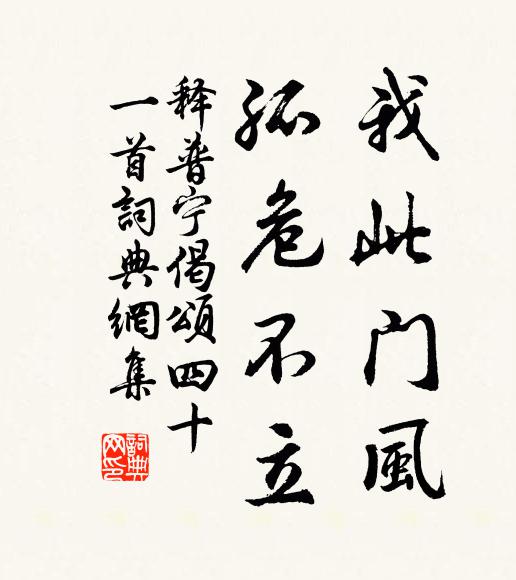 我此门風
孤危不立
释普宁偈頌四十
一首詞典網集
詞典网印